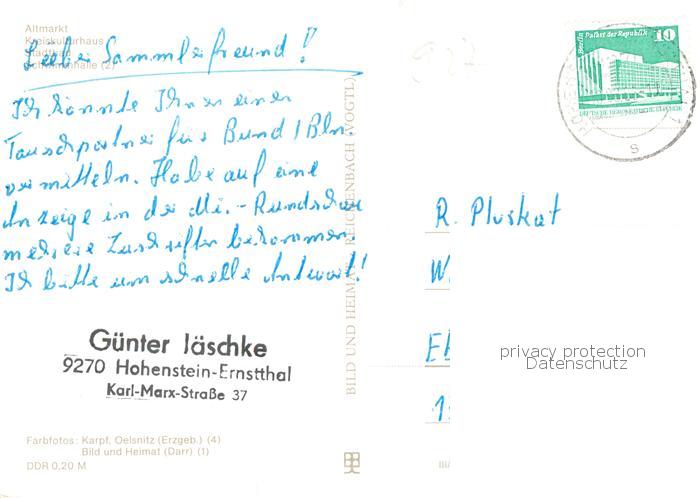 Altmarkt
Kreiskulturhaus
Stadtbad
Schwimmhalle (2)
Lieber Sammlerfreund!
Ich könnte Ihnen einen
Tauschpartner für Bund/Bln.
vermitteln. Habe auf eine
Anzeige in der Mi.-Rundschau
mehrere Zuschriften bekommen.
Ich bitte um schnelle Antwort!
Günter Jäschke
9270 Hohenstein-Ernstthal
Karl-Marx-Straße 37
Farbfotos: Karpf, Oelsnitz (Erzgeb.) (4)
Bild und Heimat (Darr) (1)
DDR 0,20 M
BILD UND HEIMAT REICHENBACH (VOGTL)
Berlin Palast der Republik 10
DEUTSCHE DEMOKRATISCHE REPUBLIK
R. Pluskat
W.
privacy protection
Datenschutz